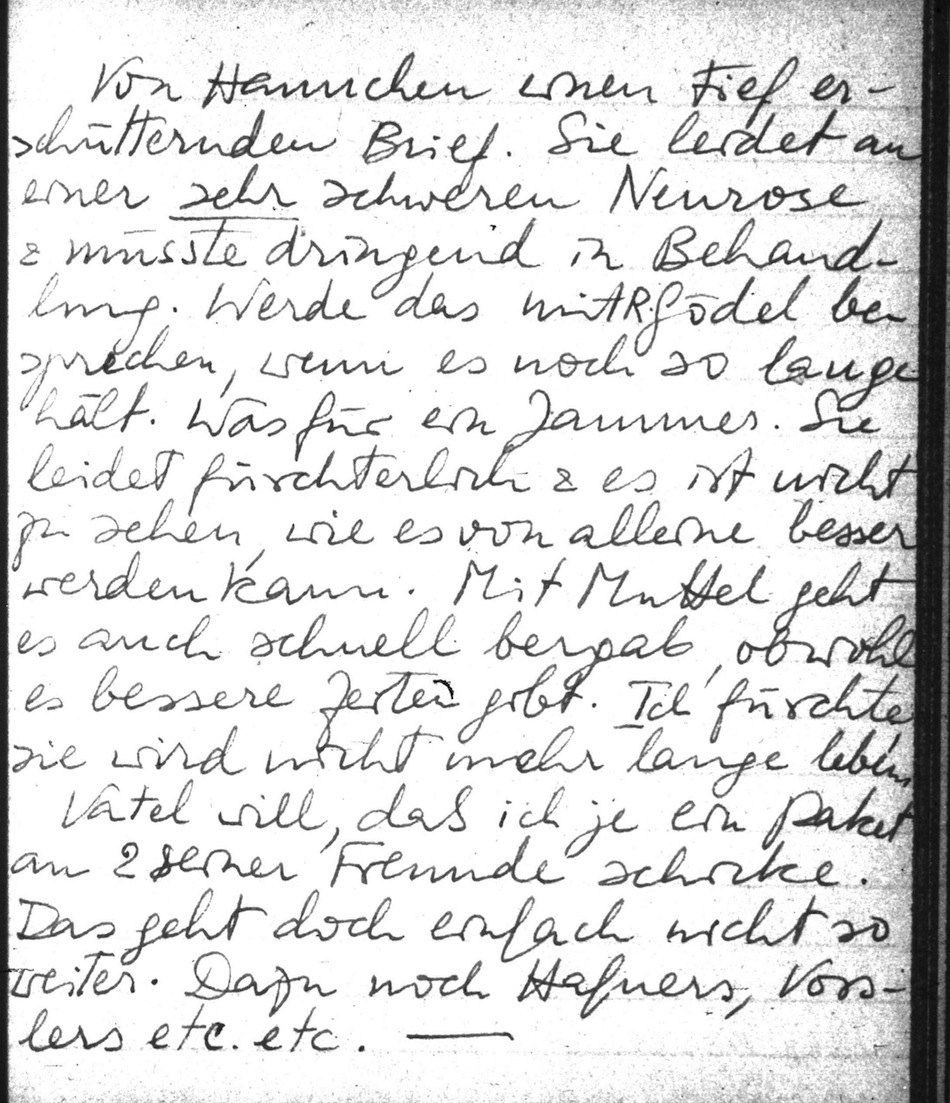 Von Hannchen einen tief er-
schütternden Brief. Sie leidet an
einer sehr schweren Neurose
& müsste dringend in Behand-
lung. Werde das mit RGödel be
sprechen, wenn es noch so lange
hält. Was für ein Jammer. Sie
leidet fürchterlich & es ist nicht
zu sehen, wie es von alleine besser
werden kann. Mit Muttel geht
es auch schnell bergab, obwohl
es bessere Zeiten gibt. Ich fürchte
sie wird nicht mehr lange leben.
Vatel will, daß ich je ein Paket
an 2 seiner Freunde schicke.
Das geht doch einfach nicht so
weiter. Dazu noch Hafners, Voss-
lers etc. etc. —